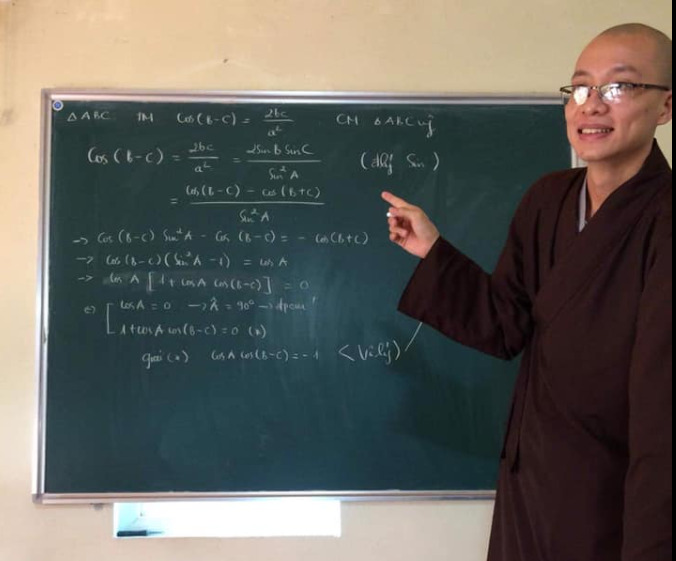 △ ABC TM Cos(B-C) = 2bc/a² CM △ABC vg
Cos(B-C) = 2bc/a² = 2Sin B Sin C/Sin² A (đlý Sin)
= Cos(B-C) - cos(B+C)/Sin² A
→ Cos(B-C) Sin² A - Cos(B-C) = - cos(B+C)
→ Cos(B-C)(Sin² A - 1) = cos A
→ Cos A [1 + cos A cos(B-C)] = 0
⇔ [ cos A = 0 → Â = 90° → đpcm!
1 + cos A cos(B-C) = 0 (*)
giải (*) Cos A cos(B-C) = -1 <Vôlý>